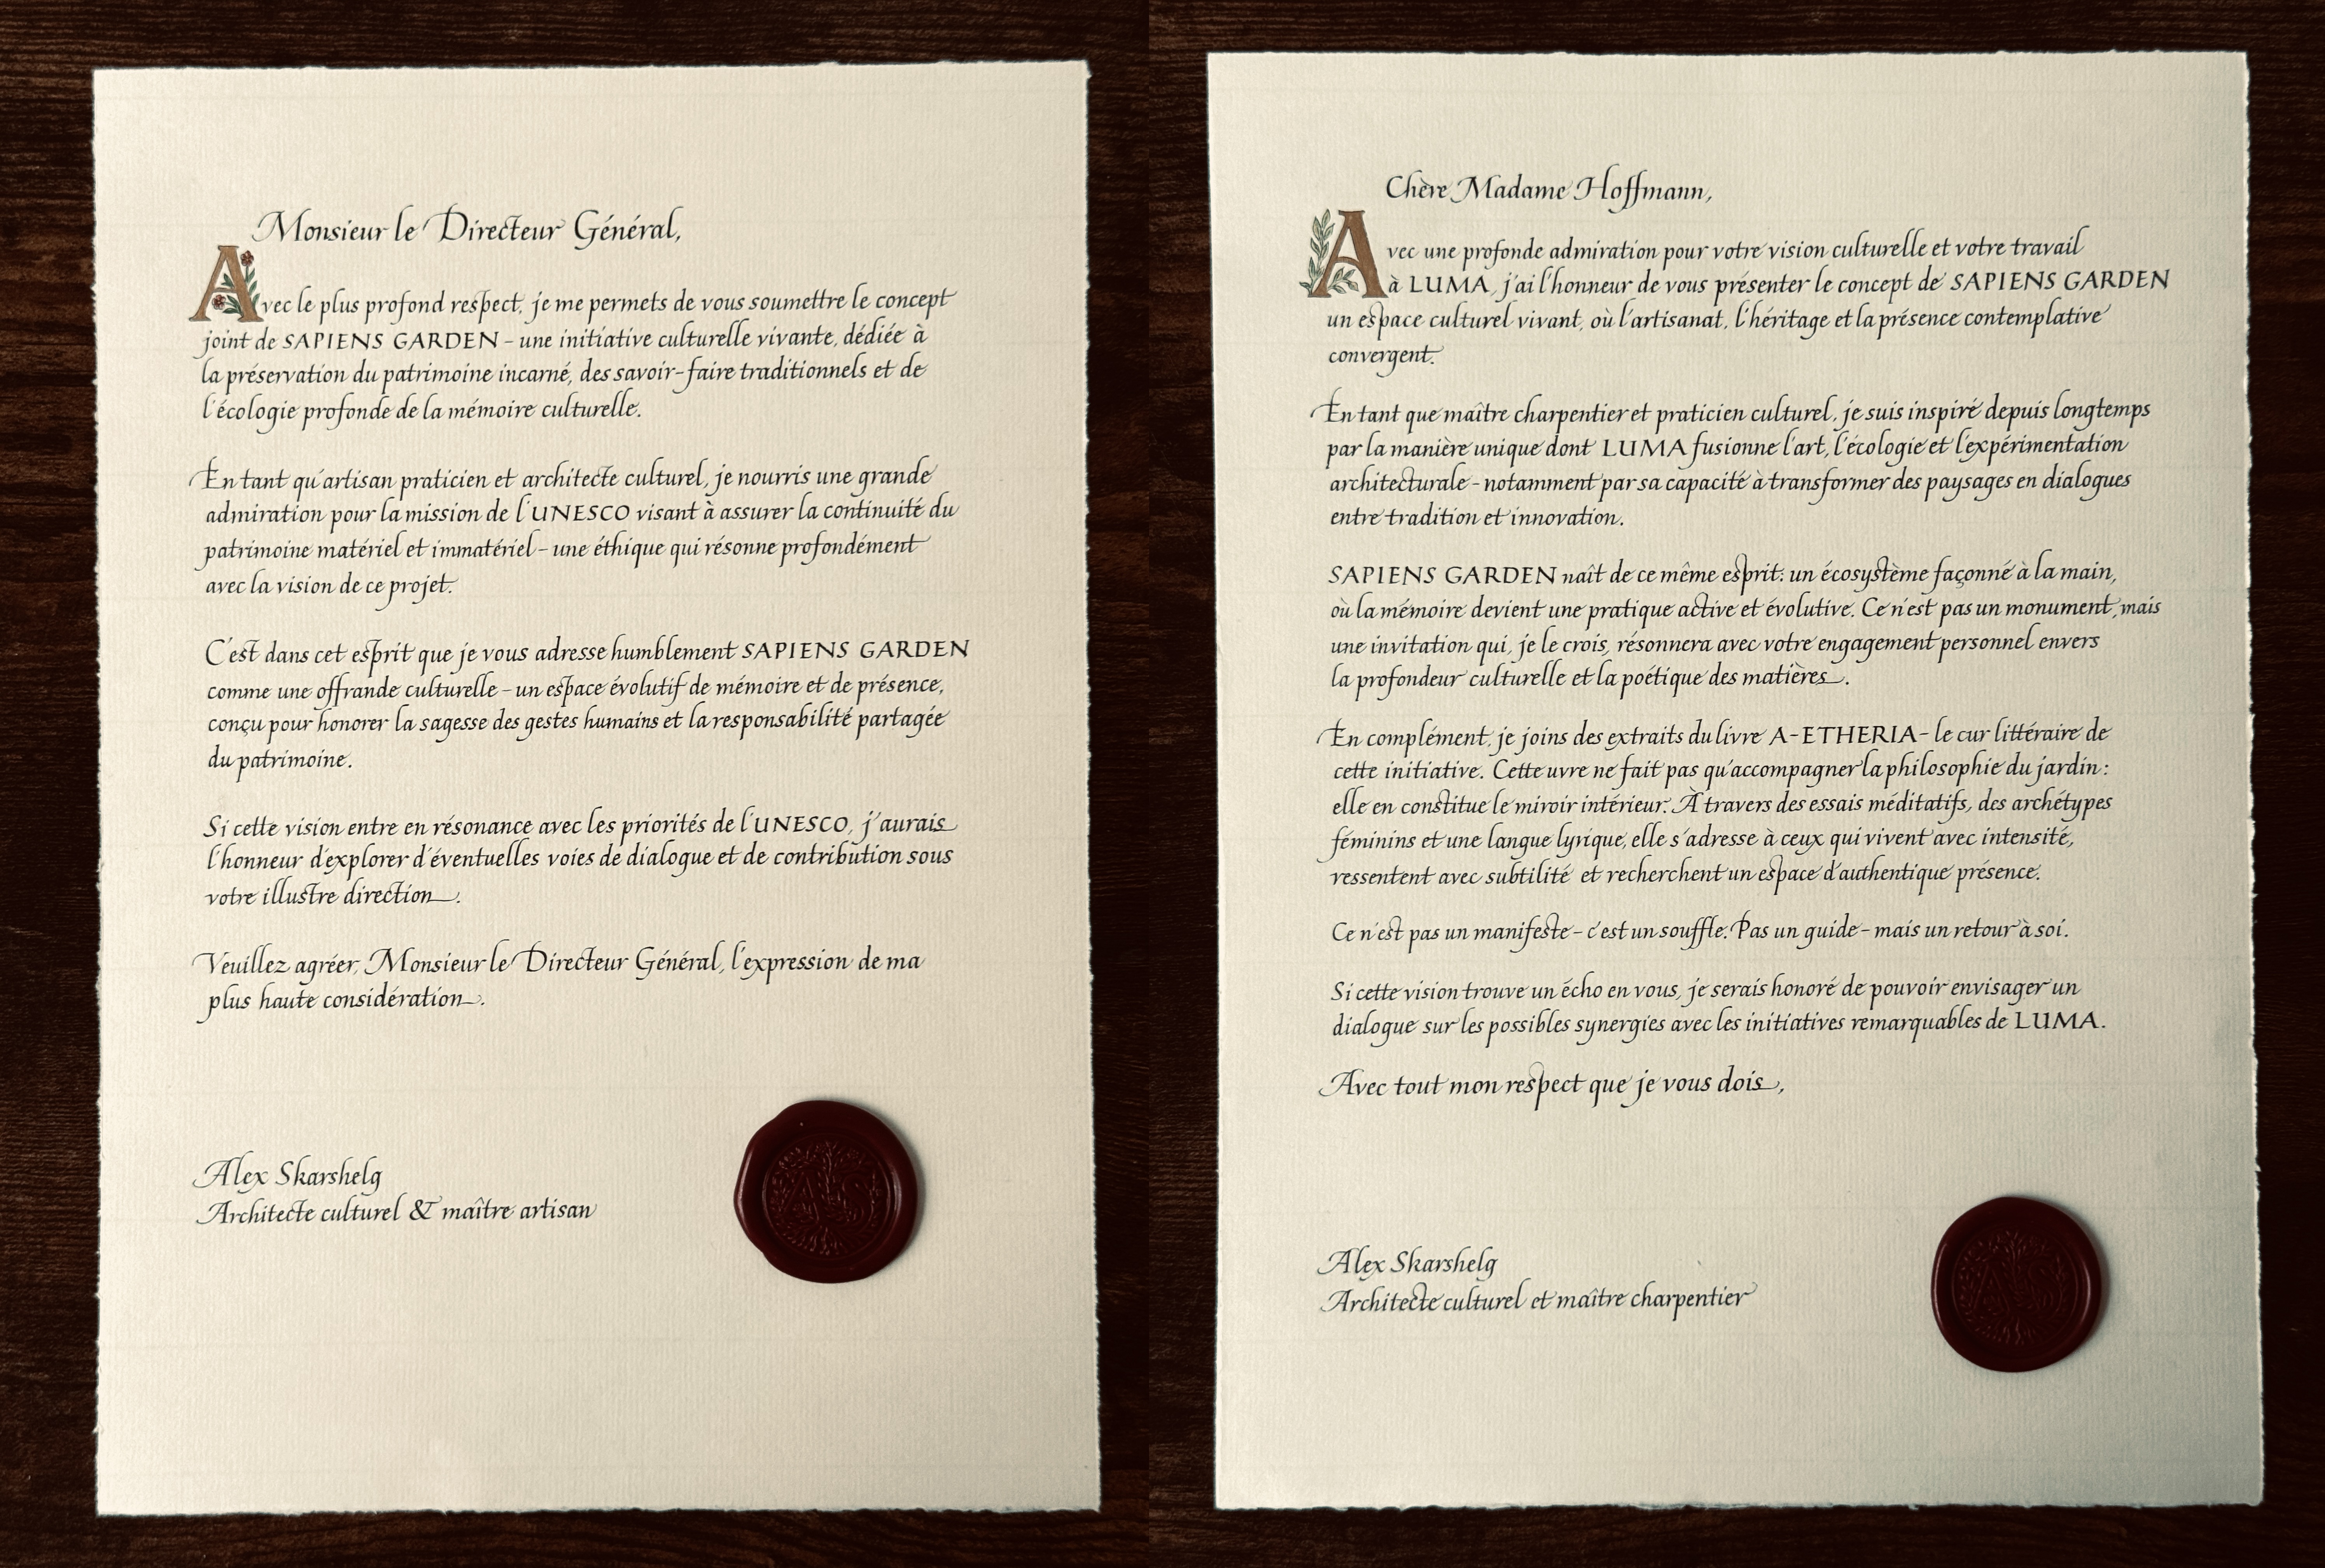 Monsieur le Directeur Général,
Avec le plus profond respect, je me permets de vous soumettre le concept
joint de SAPIENS GARDEN – une initiative culturelle vivante, dédiée à
la préservation du patrimoine incarné, des savoir-faire traditionnels et de
l'écologie profonde de la mémoire culturelle.
En tant qu'artisan praticien et architecte culturel, je nourris une grande
admiration pour la mission de l'UNESCO visant à assurer la continuité du
patrimoine matériel et immatériel – une éthique qui résonne profondément
avec la vision de ce projet.
C'est dans cet esprit que je vous adresse humblement SAPIENS GARDEN
comme une offrande culturelle – un espace évolutif de mémoire et de présence,
conçu pour honorer la sagesse des gestes humains et la responsabilité partagée
du patrimoine.
Si cette vision entre en résonance avec les priorités de l'UNESCO, j'aurais
l'honneur d'explorer d'éventuelles voies de dialogue et de contribution sous
votre illustre direction.
Veuillez agréer, Monsieur le Directeur Général, l'expression de ma
plus haute considération.
Alex Skarshelg
Architecte culturel & maître artisan
AS
Chère Madame Hoffmann,
Avec une profonde admiration pour votre vision culturelle et votre travail
à LUMA, j'ai l'honneur de vous présenter le concept de SAPIENS GARDEN
un espace culturel vivant, où l'artisanat, l'héritage et la présence contemplative
convergent.
En tant que maître charpentier et praticien culturel, je suis inspiré depuis longtemps
par la manière unique dont LUMA fusionne l'art, l'écologie et l'expérimentation
architecturale – notamment par sa capacité à transformer des paysages en dialogues
entre tradition et innovation.
SAPIENS GARDEN naît de ce même esprit: un écosystème façonné à la main,
où la mémoire devient une pratique active et évolutive. Ce n'est pas un monument, mais
une invitation qui, je le crois, résonnera avec votre engagement personnel envers
la profondeur culturelle et la poétique des matières.
En complément, je joins des extraits du livre A-ETHERIA – le cur littéraire de
cette initiative. Cette uvre ne fait pas qu'accompagner la philosophie du jardin:
elle en constitue le miroir intérieur. À travers des essais méditatifs, des archétypes
féminins et une langue lyrique, elle s'adresse à ceux qui vivent avec intensité,
ressentent avec subtilité et recherchent un espace d'authentique présence.
Ce n'est pas un manifeste – c'est un souffle. Pas un guide – mais un retour à soi.
Si cette vision trouve un écho en vous, je serais honoré de pouvoir envisager un
dialogue sur les possibles synergies avec les initiatives remarquables de LUMA.
Avec tout mon respect que je vous dois,
Alex Skarshelg
Architecte culturel et maître charpentier
AS